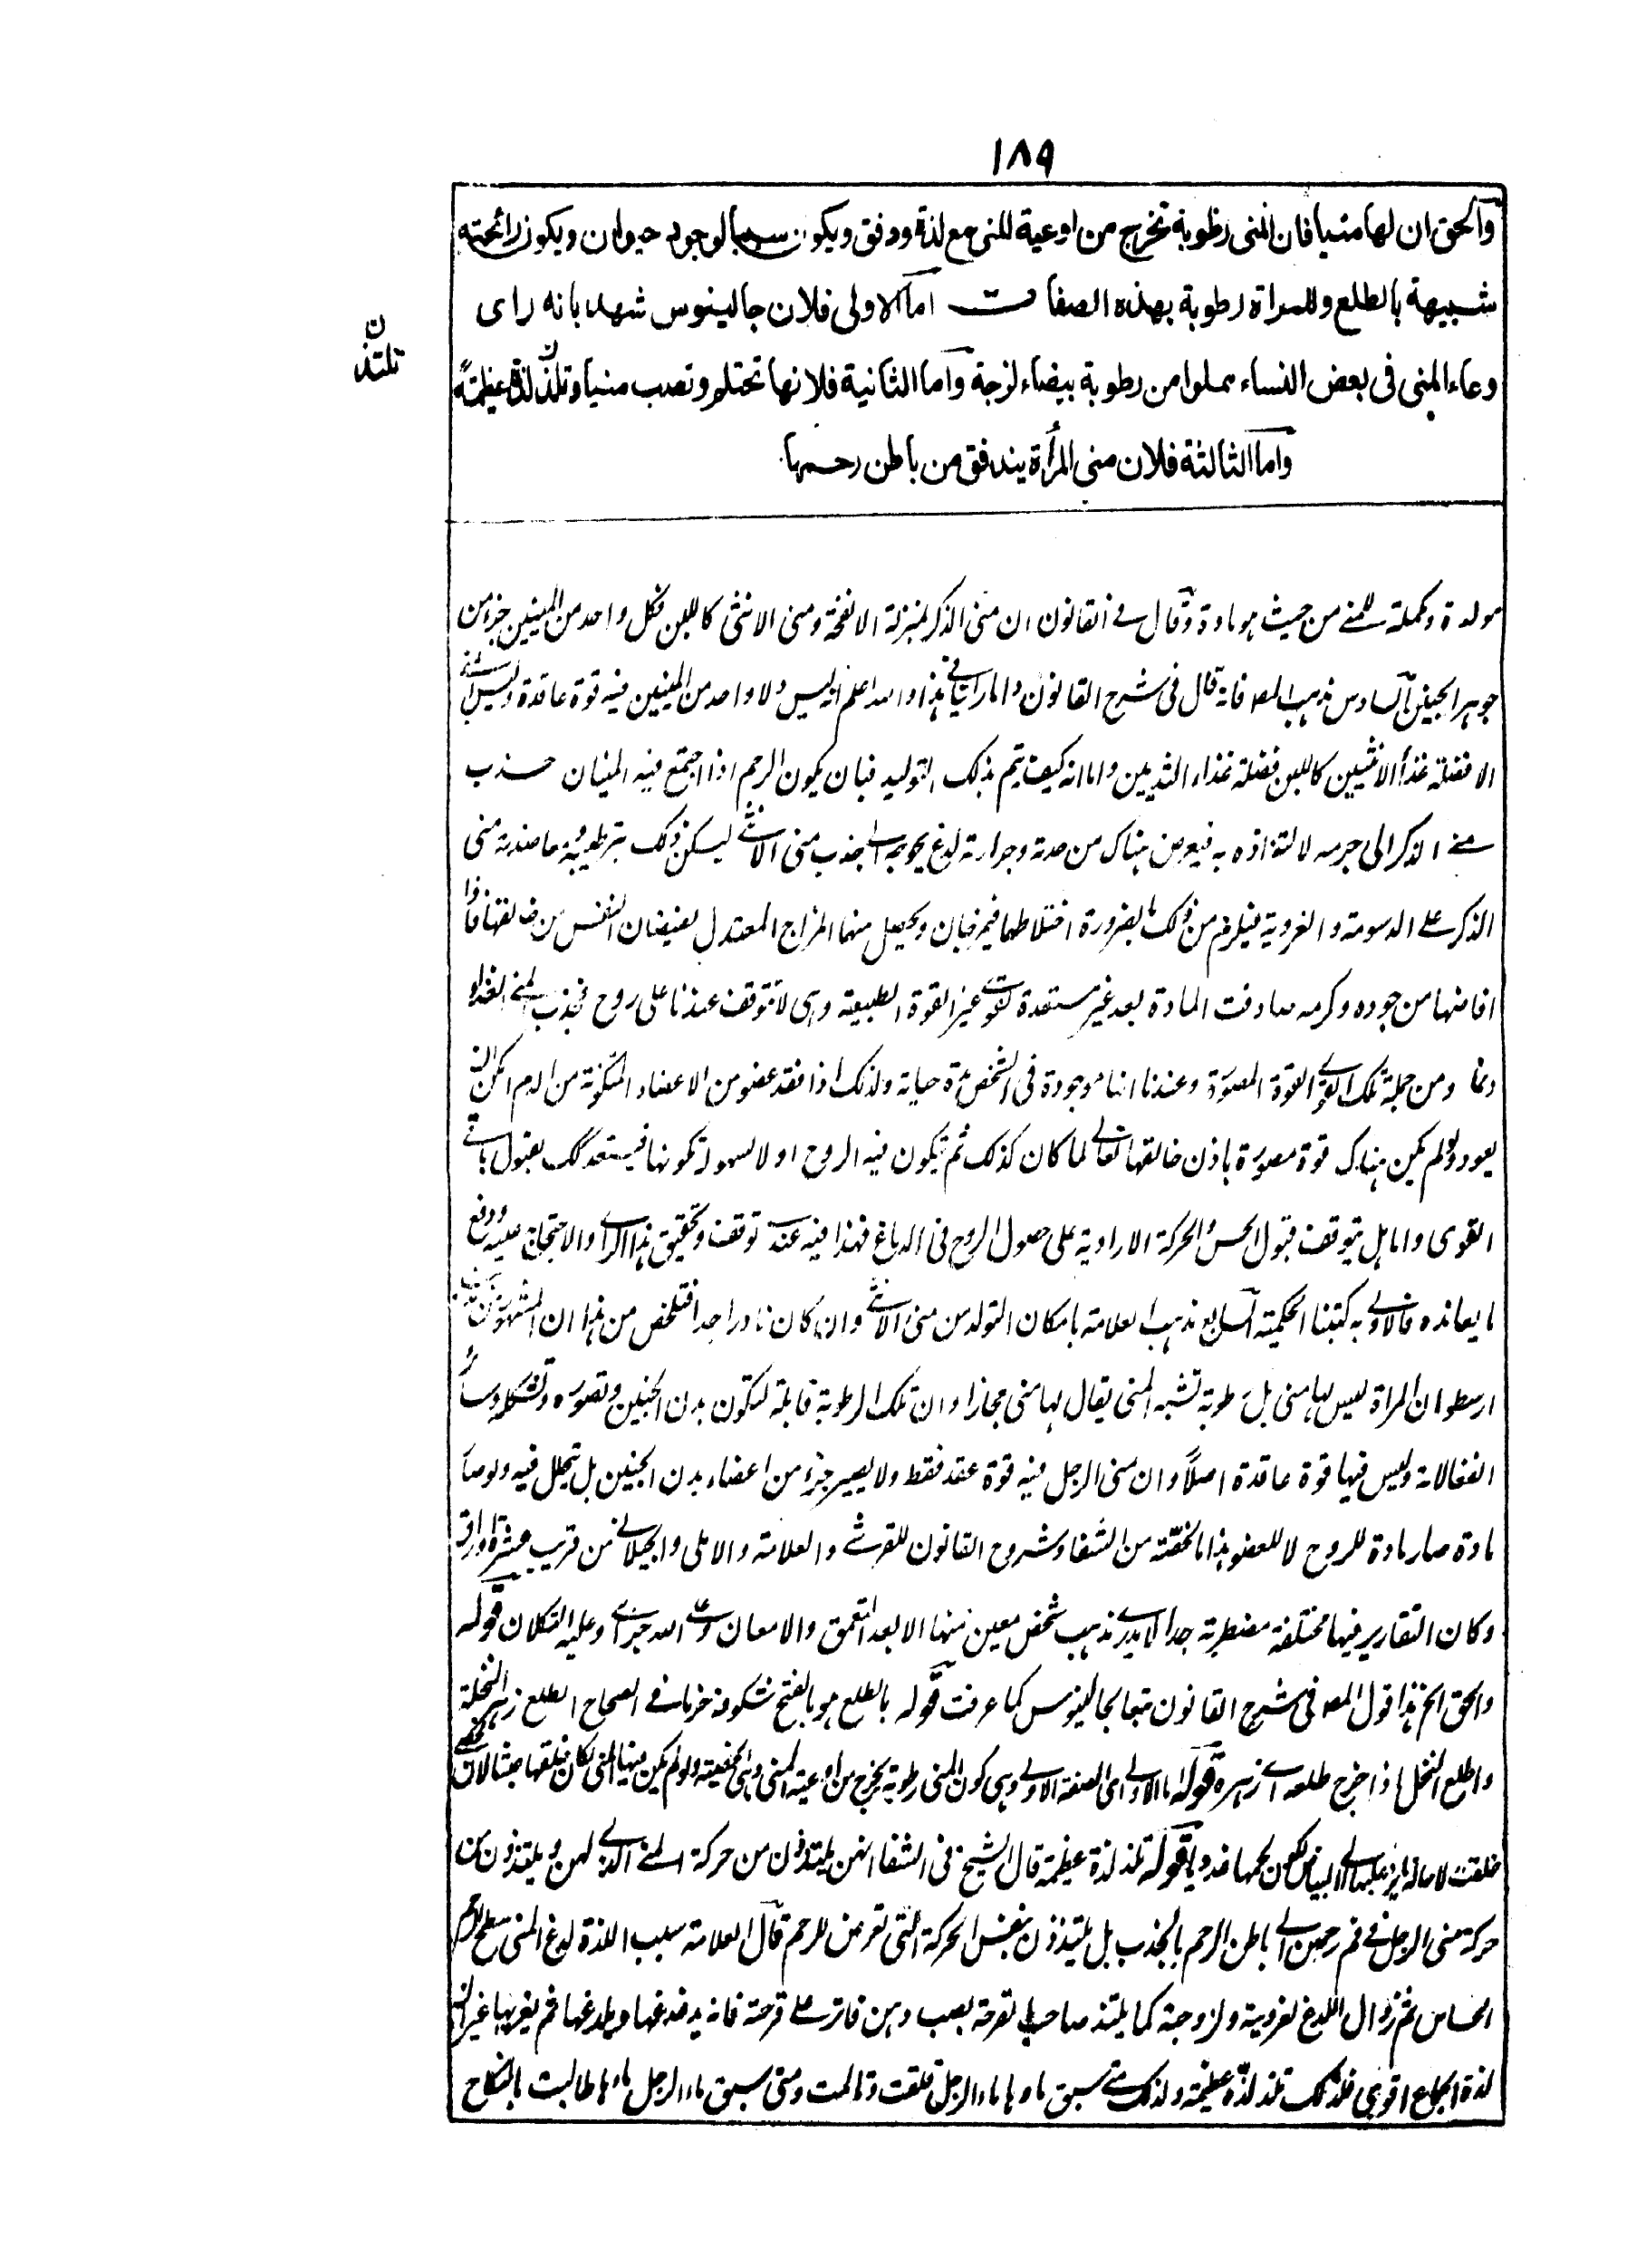 ١٨٩
والحق ان لها منيا فان المنى رطوبة تخرج من اوعية المنى مع لذة ودفق ويكون سببا لوجود حيوان ويكون رائحته
شبيهة بالطلع وللمراة رطوبة بهذه الصفات اما الاولى فلان جالينوس شهد بانه راى
ن تلتذ
وعاء المنى فى بعض النساء مملوا من رطوبة بيضاء لزجة واما الثانية فلانها تحتلم وتصب منيا وتلذ لذة عظيمة
واما الثالثة فلان منى المرأة يندفق من باطن رحمها
مولدة ومكملة للمنے من حيث هو مادة وقال فے القانون ان منى الذكر بمنزلة الانفحة ومنى الانثى كاللبن فكل واحد من المنيين جزء من
جوهر الجنين السادس مذهب المصـ فانه قال فى شرح القانون واما راينا فى هذا والله اعلم انه ليس ولا واحد من المنيين فيه قوة عاقدة وليس
الا فضلة غذاء الانثيين كاللبن فضلة غذاء الثديين واما انه كيف يتم بذلك التوليد فبان يكون الرحم اذا اجتمع فيه المنيان جذب
منے الذكر الى جرمه لالتذاذه به فيعرض هناك من حدته وحرارته لذع يحوجه الى جذب منى الانثے ليسكن ذلك برطوبته منى
الذكر على الدسومة والغروية فيلزم من ذلك بالضرورة اختلاطهما فيمزجان ويحصل منهما المزاج المعتدل لفيضان النفس من خالقها فاذا
افاضها من جوده وكرمه صادفت المادة بعد غير مستعدة لقوے غير القوة الطبيعية وهى لا تتوقف عندنا على روح فيجذب المنے الغذاء
ومن جملة تلك القوے القوة المصورة وعندنا انها موجودة فى الشخص مدة حياته ولذلك اذا فقد عضو من الاعضاء المتكونة من الدم امكن ان
يعود ولو لم يكن هناك قوة مصورة باذن خالقها تعالے لما كان كذلك ثم يكون فيه الروح اولا لسهولة تكونها فيستعد لذلك لقبول باقے
القوى واما هل يتوقف قبول الحس والحركة الارادية على حصول الروح فى الدماغ فهذا فيه عندے توقف وتحقيق هذا الراے والاحتجاج عليه ودفع
ما يعانده فالاولے به كتبنا الحكمية السابع مذهب العلامة بامكان التولد من منى الانثے وان كان نادرا جدا فتلخص من هذا ان المشهور من مذهب
ارسطو ان المراة ليس لها منى بل رطوبة تشبه المنى يقال لها منى مجازا وان تلك الرطوبة قابلة لتكون بدن الجنين وتصوره وتشكله وسائر
انفعالاته وليس فيها قوة عاقدة اصلاً وان منى الرجل فيه قوة عقد فقط ولا يصير جزء من اعضاء بدن الجنين بل يتحلل فيه ولو صار
مادة صار مادة للروح لا للعضو هذا ما لخصته من الشفا وشروح القانون للقرشے والعلامة والاملى والجيلانے من قريب عشرة اوراق
وكان التقارير فيها مختلفة مضطربة جدا لا يدرے مذهب شخص معين منها الا بعد التعمق والامعان وعلے الله جزاے وعليه التكلان قوله
والحق الخ هذا قول المصـ فى شرح القانون تبعا لجالينوس كما عرفت قوله بالطلع هو بالفتح شكوفه خرما فے الصحاح الطلع زهر النخلة
واطلع النخل اذا خرج طلعه اے زهره قوله اما الاولے اى الصفة الاولے وهى كون المنى رطوبة يخرج من اوعية المنى وهى الحقيقة ولو لم يكن فيها المنى لكان خلقها عبثا لان
خلقت لاحالة ما يرد عليها الے البياض لكون لحمها غدديا قوله تلذ لذة عظيمة قال الشيخ فى الشفا انهن يلتذذن من حركة المنے الذے لهن ويلتذذن من
حركة منى الرجل فے فم رحمهن الے باطن الرحم بالجذب بل يلتذذن بنفس الحركة التى تعرض للرحم قال العلامة سبب اللذة لذع المنى سطح الرحم
الحساس ثم زوال اللذع لغرويته ولزوجته كما يلتذ صاحب القرحة بصب دهن فاتر على قرحته فانه يدغدغها ويلدغها ثم يغريها غير ان
لذة الجماع اقوى فلذلك تلذ لذة عظيمة ولذلك متے سبق ماءها ماء الرجل قلقت وتالمت ومتى سبق ماء الرجل ماءها طالبت بالنكاح